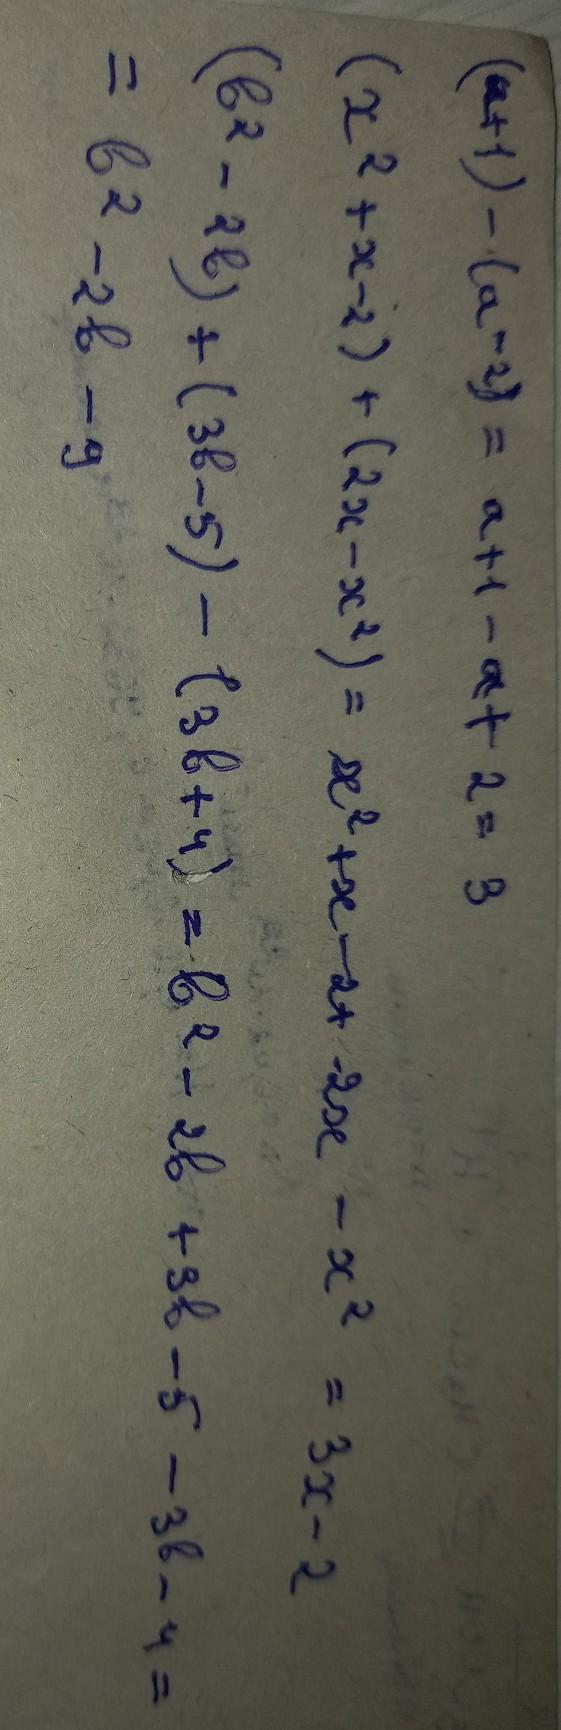 (a+1) - (a-2) = a+1-a+2=3
(x²+x-2)+(2x-x²)= x²+x-2+2x-x² =3x-2
(b²-2b)+(3b-5)-(3b+4)=b²-2b+3b-5-3b-4=
= b²-2b-9